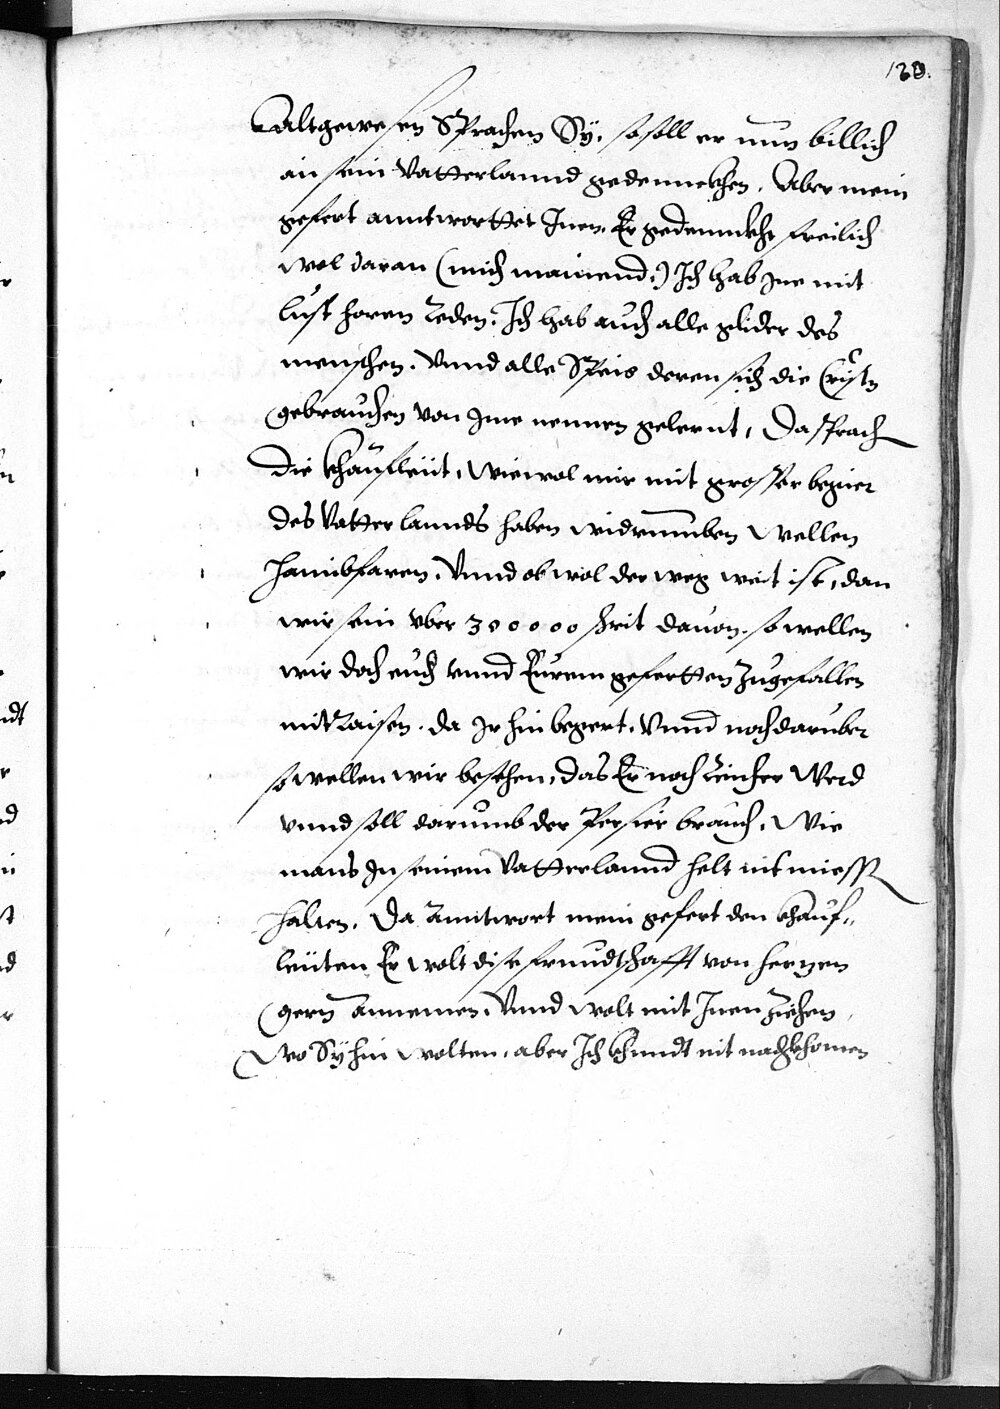 120.
Alt gewesen Sprachen Sy, so soll er nun billich
an sein Vatterlannd gedennckhen. Aber mein
gefert anntworttet Inen, Er gedennckhe freilich
wol daran (mich mainend:) Ich hab Ine mit
lust horen Reden, Ich hab auch alle glider des
menschen. Vnnd alle Speis deren sich die Cristn
gebrauchen von Ime nennen gelernt, Da sprach
die khaufleüt, Wiewol mir mit grosser begier
des Vatterlannds haben widrumben wellen
haimbfaren. Vnnd obwol der weg weit ist, dan
wir sein vber 300000 schrit dauon. so wellen
wir doch euch vnnd Eurem gefertten Zugefallen
mitRaisen. da Ir hin begert. Vnnd noch daruber
so wellen wir besehen, das Er noch Reicher Werd
vnnd soll darumb der Persier brauch, Wie
mans In seinem Vatterlannd helt nit miessn
halten. Da Anntwort mein gefert den khauf„
leüten Er wolt dise freundtschafft von herzen
gern annemen. Vnnd wolt mit Inen Ziehen
Wo Sy hin wolten, aber Ich khundt nit nachkhomen